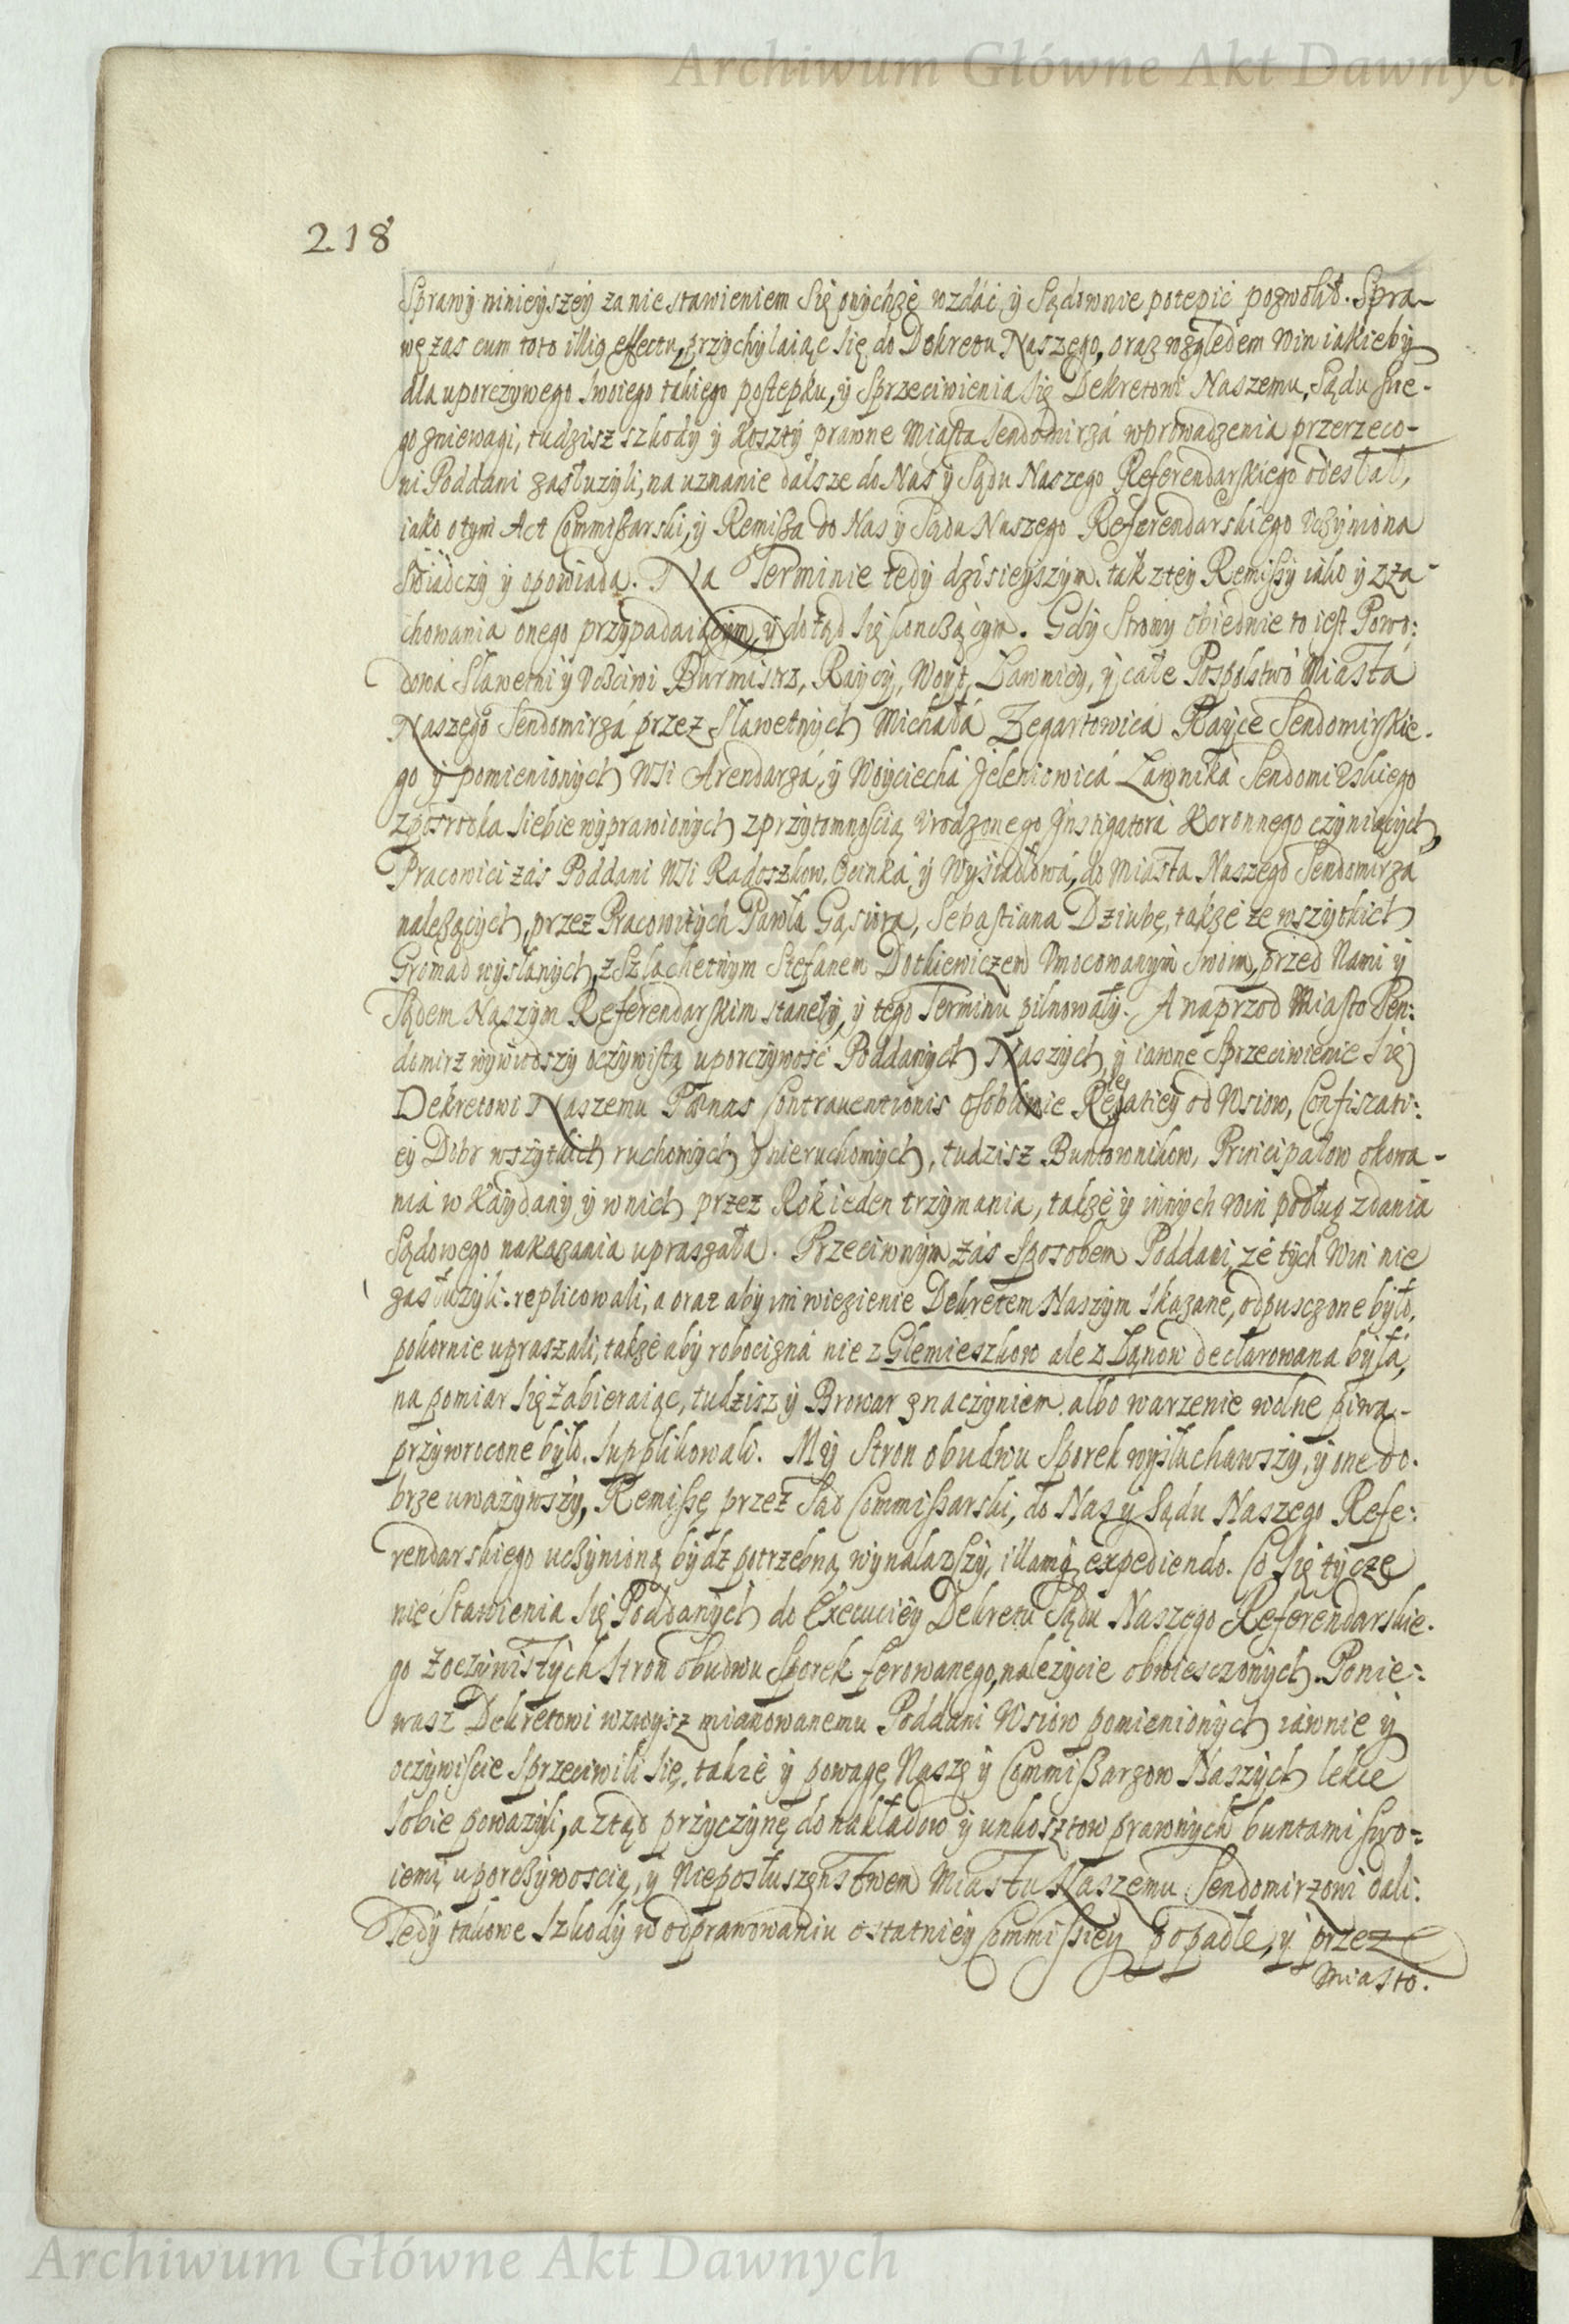 Archiwum Główne Akt Dawnych
218
Sprawy ninieyszey za nie stawieniem się onychże wzdáć y Sądownie potępić pozwolił. Spra-
wę zas cum toto illius effectu, przychylaiąc się do Dekretu Naszego, oraz względem win iakieby
dla uporczywego swoiego takiego postępku, y Sprzeciwienia się Dekretowi Naszemu, Sądu sne-
go zniewagi, tudzisz szkody y koszty prawne Miasta Sendomirzá wprowadzenia przerzeco-
ni Poddani zasłuzyli, na uznanie dalsze do Nas y Sądu Naszego Referendarskiego odesłał,
iako o tym Act Commissarski, y Remissa do Nas y Sądu Naszego Referendarskiego uczyniona
Swiadczy y opowiada. Na Terminie tedy dzisieyszym, tak z tey Remissy iako y z za-
chowania onego przypadaiącym, y dotąd się konczącym. Gdy Strony obiednie to iest Powo:
dowá Sławetni y Uczciwi Burmistrz, Raycy, Woyt, Ławnicy, y całe Pospolstwo Miastá
Naszego Sendomirzá przez Sławetnych Micháłá Zegartowicá Rayce Sendomirskie-
go y pomienionych Wsi Arendarzá, y Woyciechá Jeleniowicá Ławniká Sendomirskiego
zposrodka siebie wyprawionych z przytomnoscią Urodzonego Instigatorá Koronnego czyniących,
Pracowici zás Poddani Wsi Radoszkow, Ocinká y Wysiadłowá, do Miásta Naszego Sendomirzá
należących, przez Pracowitych Pawła Gąsiora, Sebastiana Dziubę, także ze wszytkich
Gromad wysłanych, z Szlachetnym Stefanem Dotkiewiczem Umocowanym swoim, przed Nami y
Sądem Naszym Referendarskim stanęły, y tego Terminu pilnowały. A naprzod Miasto Sen:
domirz wywiodszy oczywistą uporczywość Poddanych Naszych, y iawne Sprzeciwienie się
Dekretowi Naszemu Pænas Contrauentionis osobliwie Relegatiey od Wsiow, Confiscati:
ey Dobr wszytkich ruchomych y nieruchomych, tudzisz Buntownikow, Principałow okowa-
niá w Kaydany y w nich przez Rok ieden trzymania, także y innych win podług zdania
Sądowego nakazania upraszała. Przeciwnym zás sposobem Poddani, ze tych Win nie
zasłuzyli replicowali, a oraz aby im więzienie Dekretem Naszym skazane, odpusczone było,
pokornie upraszali, także aby robocizná nie z Glemieszkow ale z Łanow declarowana byłá,
na pomiar się zabieraiąc, tudzisz y Browar z naczyniem albo warzenie wolne piwa-
przywrocone było, supplikowali. My Stron obudwu Sporek wysłuchawszy, y one do-
brze uwazywszy, Remissę przez Sąd Commissarski, do Nas y Sądu Naszego Refe:
rendarskiego uczynioną bydz potrzebną wynalazszy, illamq; expediendo. Co się tycze
nie Stawienia się Poddanych do Executiey Dekretu Sądu Naszego Referendarskie-
go z oczywistych Stron obudwu Sporek ferowanego, nalezycie obwiesczonych. Ponie:
wasz Dekretowi wzwysz mianowanemu Poddani Wsiow pomienionych iawnie y
oczywiscie Sprzeciwili się, także y powagę Naszę y Commissarzow Naszych lekce
sobie powazyli, a ztąd przyczynę do nakładow y unkosztow prawnych buntami swo=
iemi uporczywoscią, y Nieposłuszęnstwem Miastu Naszemu Sendomirzowi dali:
Tedy takowe szkody w odprawowaniu ostatniey Commissiey popadłe, y przez
Miasto.
Archiwum Główne Akt Dawnych